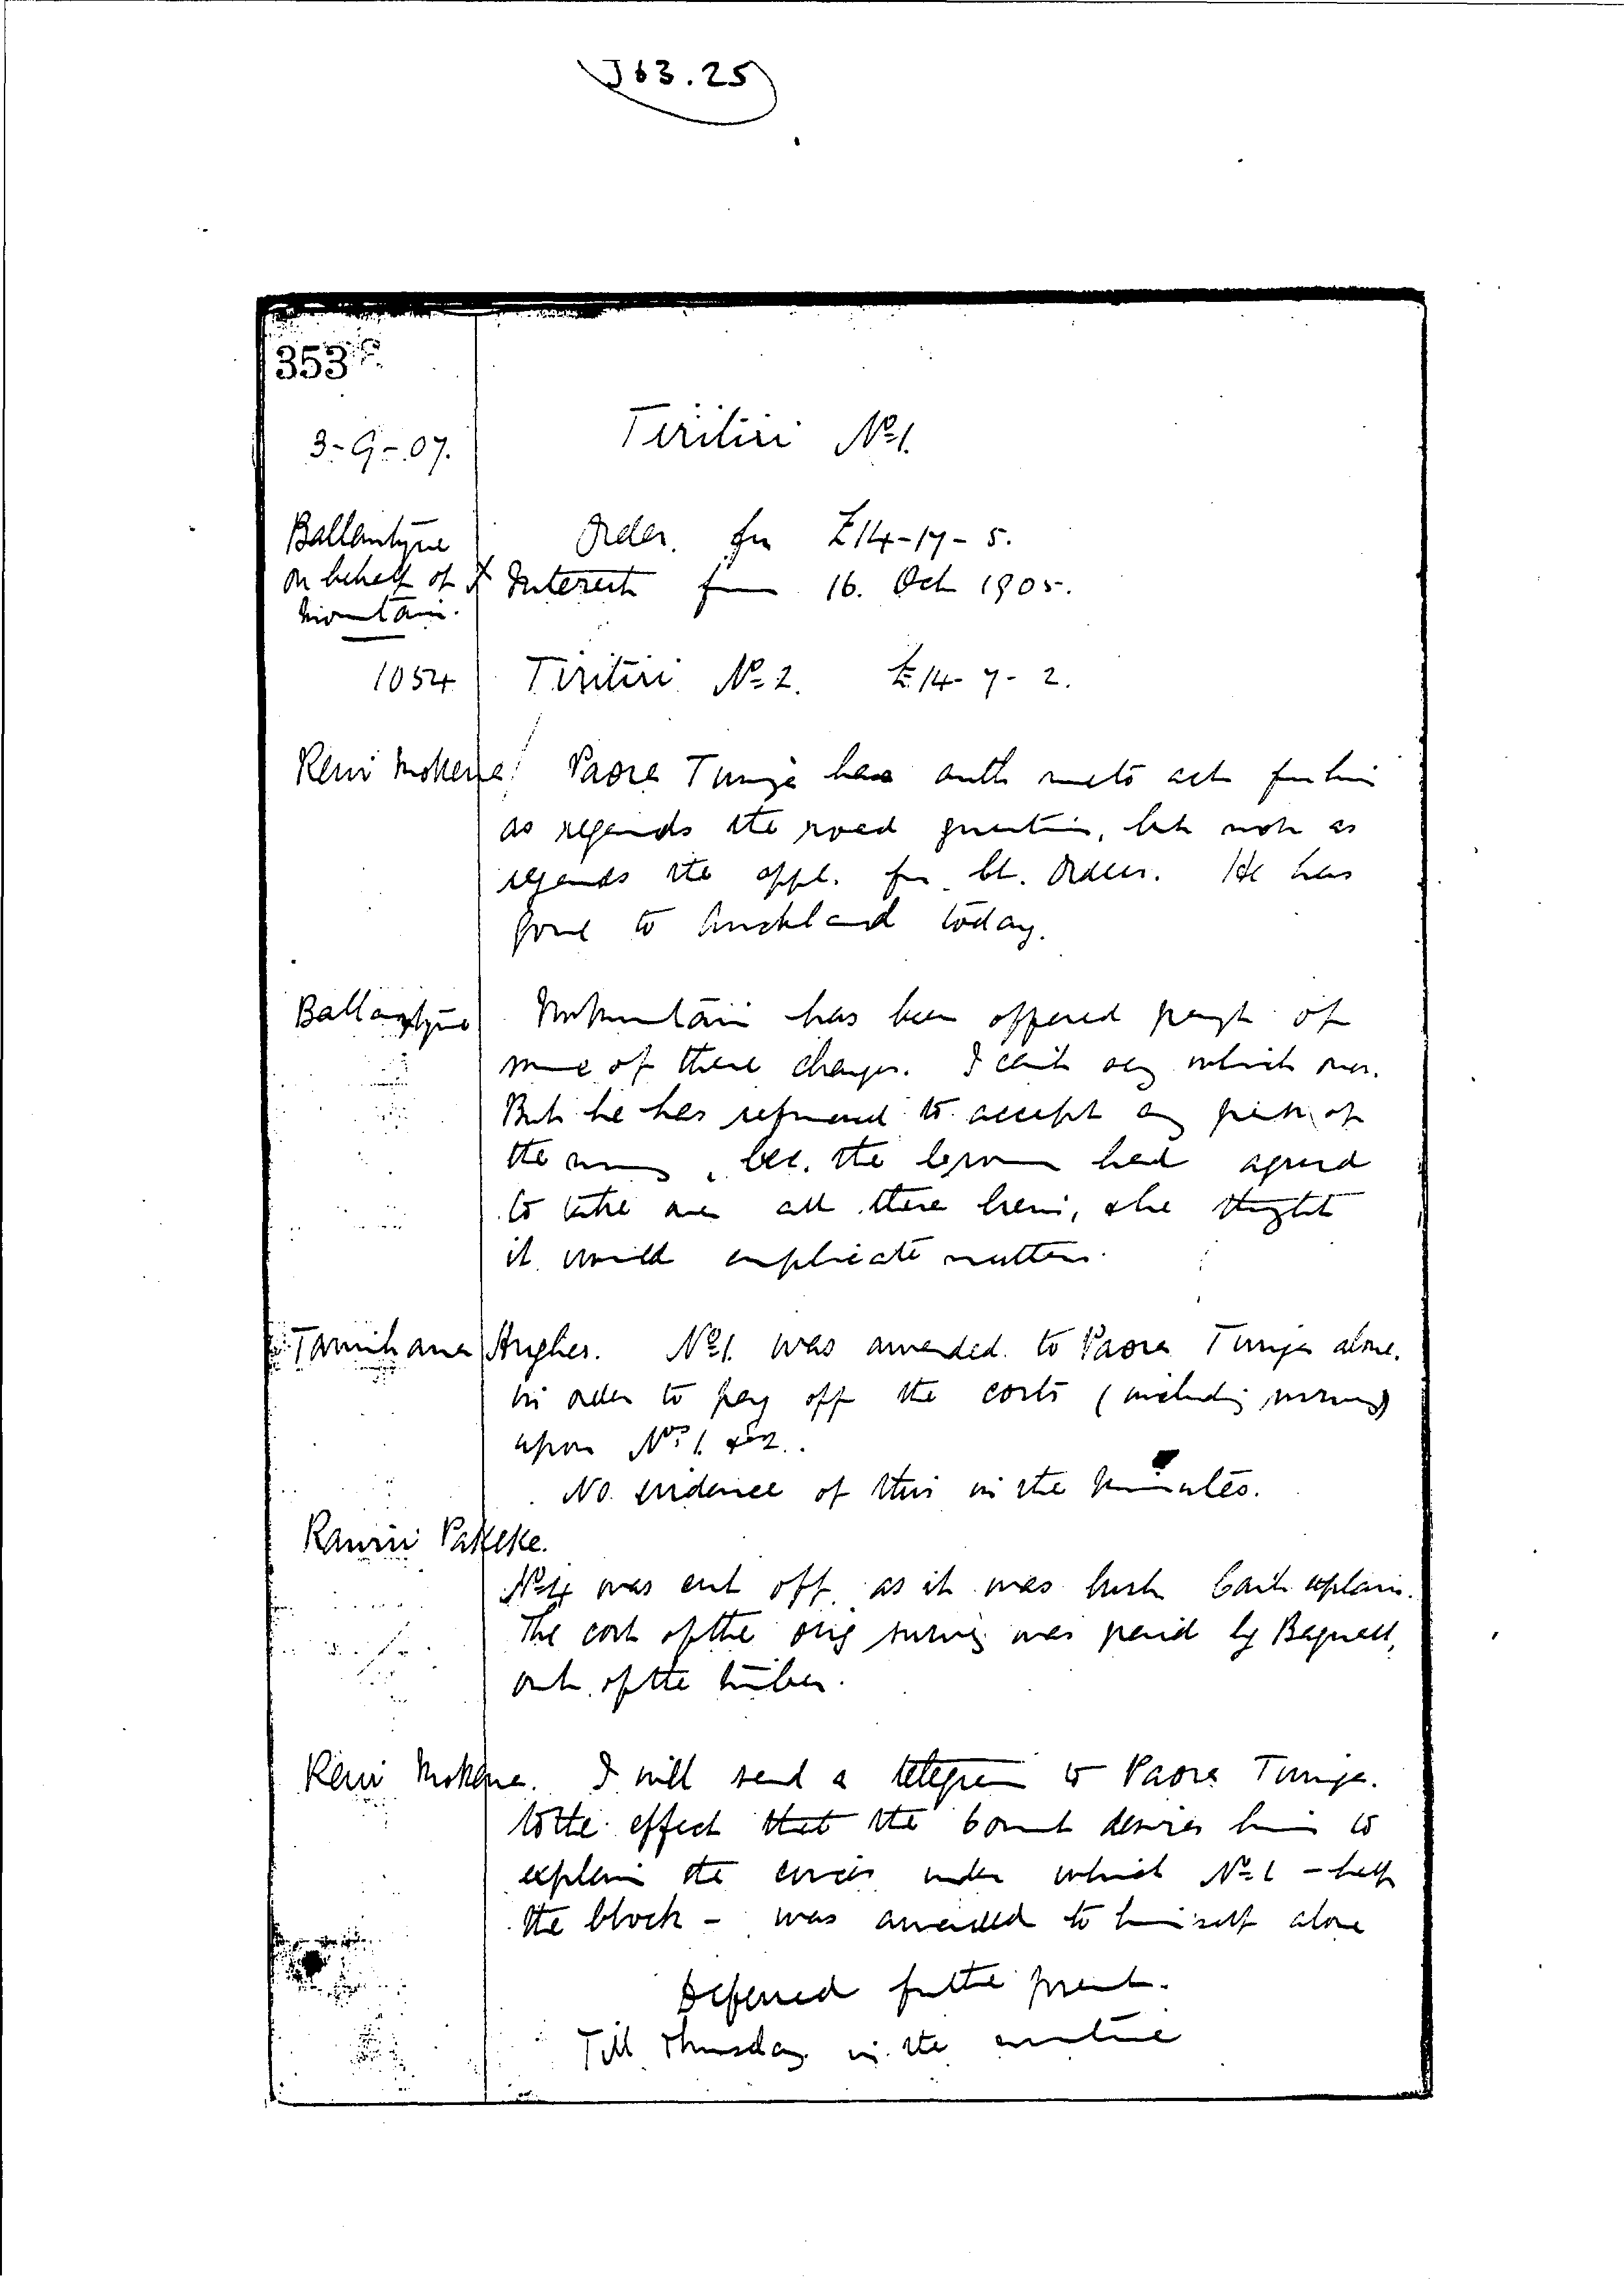 J63.25
353
3-9-07.
Tiritiri No 1.
Ballantyne
on behalf of
Mountain.
Order. for £14-17-5.
& Interest from 16. Oct 1905.
1054 Tiritiri No 2. £14-7-2.
Rewi Mokena Paora Tunga has auth me to act for him
as regards the road question, but not as
regards the appl. for Ct. Orders. He has
gone to Auckland today.
Ballantyne Mr Mountain has been offered paymt of
some of these charges. I can't say which ones.
But he has refused to accept any part of
the money, bec. the Crown had agreed
to take over all these liens, & he thought
it would complicate matters.
Tamihana Hughes. No 1. was awarded to Paora Tunga alone.
in order to pay off the costs (including survey)
upon Nos 1. & 2.
No evidence of this in the minutes.
Rawiri Pakeke.
No 4 was cut off as it was bush Can't explain.
The cost of the orig survey was paid by Bagnall,
out of the timber.
Rewi Mokena. I will send a telegram to Paora Tunga.
to the effect that the Court desires him to
explain the circes under which No 1 - half
the block - was awarded to himself alone
Deferred for the present.
Till Thursday in the